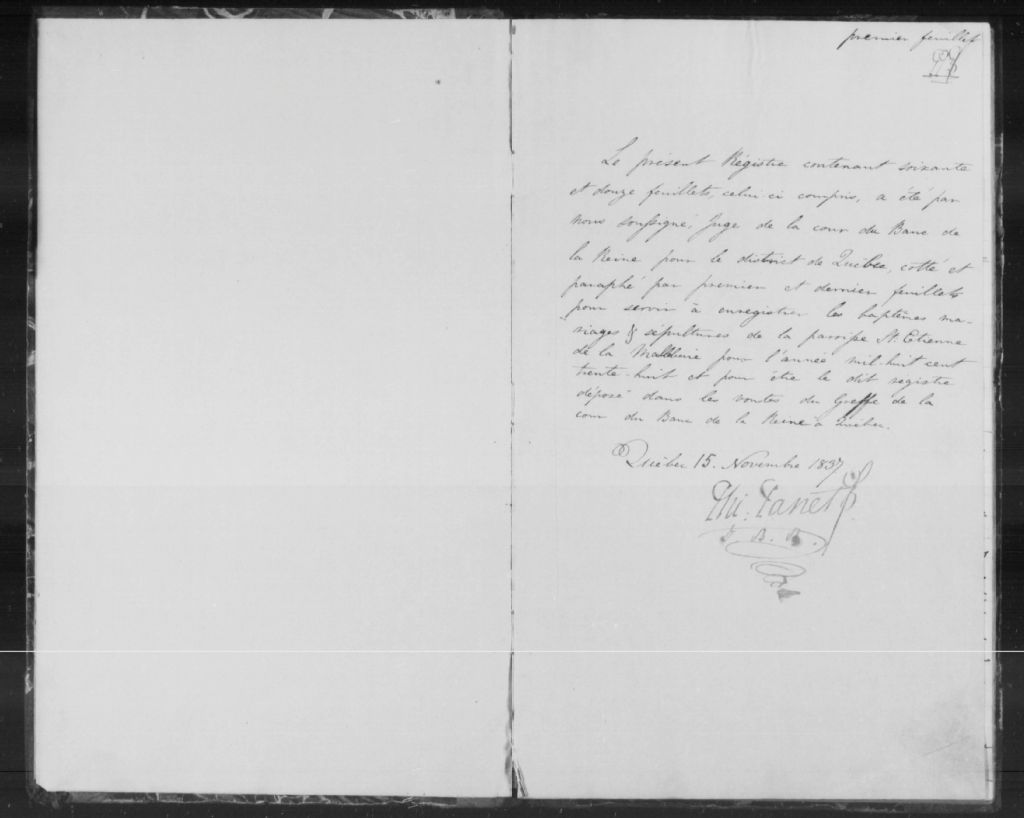 premier feuillet
Le présent Régistre contenant soixante
et douze feuillets, celui-ci compris, a été par
nous soussigné, Juge de la cour du Banc de
la Reine pour le district de Québec, cotté et
paraphé par premier et dernier feuillets
pour servir à enregistrer les baptêmes ma-
riages & sépultures de la paroisse St. Etienne
de la Malbaie pour l'année mil-huit cent
trente-huit et pour être le dit registre
déposé dans les voutes du Greffe de la
cour du Banc de la Reine à Quebec.
Québec 15. Novembre 1837
Phi. Panet
J. B. R.